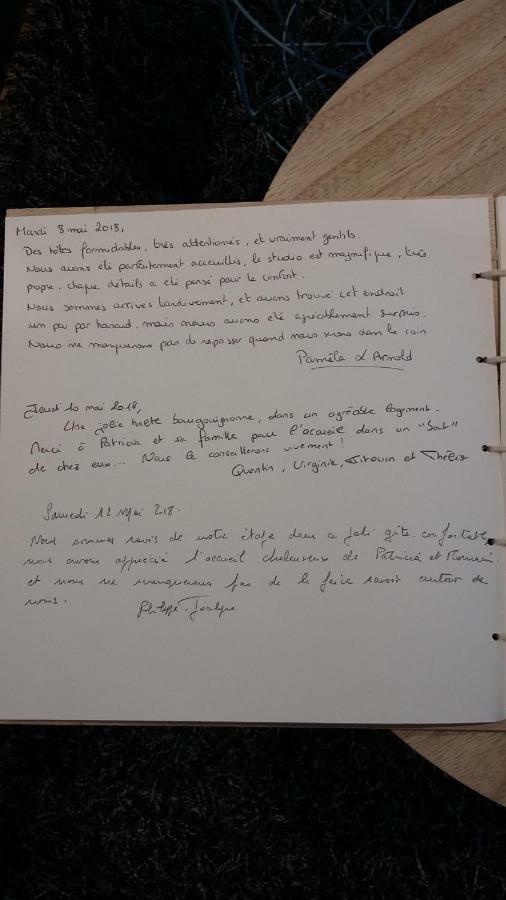 Mardi 8 mai 2018,
Des hôtes formidables, très attentionnés, et vraiment gentils.
Nous avons été parfaitement accueillis, le studio est magnifique, très
propre, chaque détails a été pensé pour le confort.
Nous sommes arrivés tardivement, et avons trouvé cet endroit
un peu par hasard, mais nous avons été agréablement surpris.
Nous ne manquerons pas de repasser quand nous irons dans le coin
Paméla & Arnold
Jeudi 10 mai 2018,
Une jolie halte bourguignonne, dans un agréable logement.
Merci à Patricia et sa famille pour l'accueil dans un "bout"
de chez eux... Nous le conseillerons vivement !
Quentin, Virginie, et
Samedi 12 Mai 218.
Nous sommes ravis de notre étape dans ce joli gîte confortable,
nous avons apprécié l'accueil chaleureux de Patricia et Romain
et nous ne manquerons pas de le faire savoir autour de
nous.
Philippe.